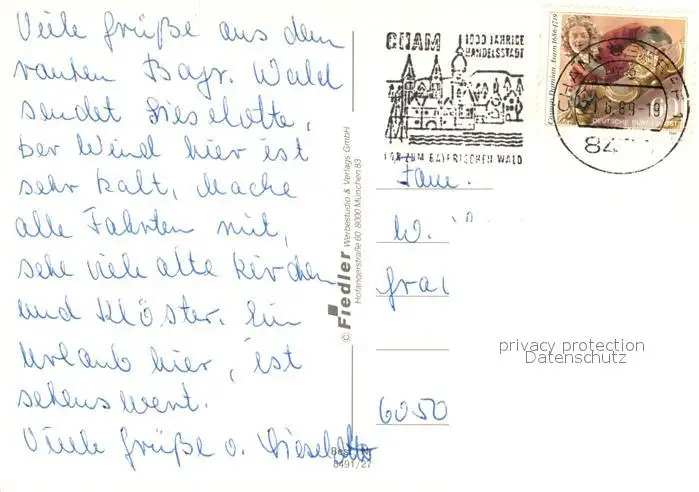 Viele Grüße aus dem
rauhen Bayr. Wald
sendet Lieselotte,
Der Wind hier ist
sehr kalt, Mache
alle Fahrten mit,
sehe viele alte Kirchen
und Klöster. Ein
Urlaub hier, ist
sehenswert.
Viele Grüße v. Lieselotte
© Fiedler Werbestudio & Verlags GmbH
Hofangerstraße 60 8000 München 83
8491/27
CHAM 1000 JÄHRIGE
HANDELSSTADT
TOR ZUM BAYERISCHEN WALD
Cosmas Damian Asam 1686-1739
DEUTSCHE BUNDESPOST
CHAM
6.89-19
Fam.
W.
6050
privacy protection
Datenschutz